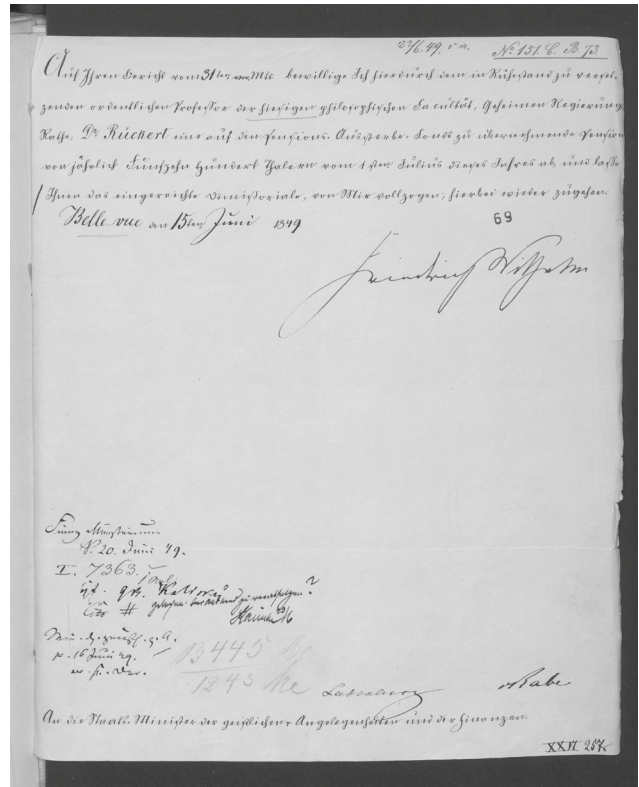 22/6.49. i a.
No 151. C. B. 73
Auf Ihren Bericht vom 31ten v. Mts. bewillige Ich hierdurch dem in Ruhestand zu verset-
zenden ordentlichen Professor der hiesigen philosophischen Facultät, Geheimen Regierungs
Rathe, Dr Rückert eine auf den Pensions-Aussterbe-Fonds zu übernehmende Pension
von jährlich Fünfzehn Hundert Thalern vom 1sten Julius dieses Jahres ab, und lasse
Ihnen das eingereichte Dimissoriale, von Mir vollzogen, hierbei wieder zugehen.
Belle-vue den 15ten Juni 1849
69
Friedrich Wilhelm
Finanz Ministerium
20. Juni 49.
I. 7363.
pr. 16 Juni 49.
B 445
1245
Ladenberg
v Rabe
An die Staats-Minister der geistlichen Angelegenheiten und der Finanzen.
XXII 257